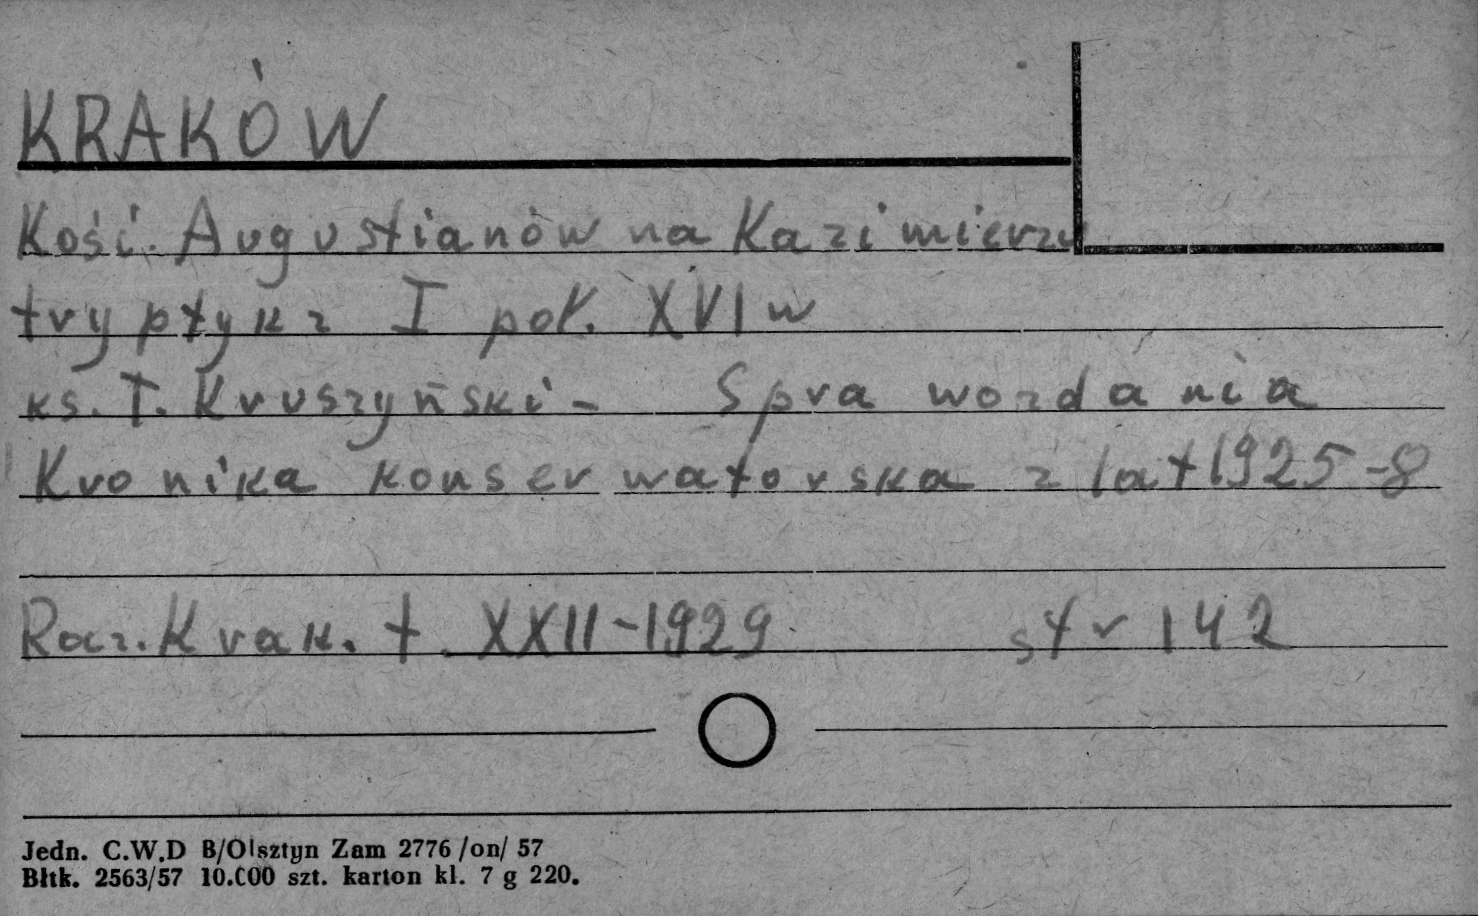 KRAKÓW
Kości. Augustianów na Kazimierzu
tryptyk z I poł. XVI w
ks. T. Kruszyński - Sprawozdania
Kronika konserwatorska z lat 1925-8
Rocz. Krak. t. XXII-1929 str 142
Jedn. C.W.D B/Olsztyn Zam 2776 /on/ 57
Błtk. 2563/57 10.000 szt. karton kl. 7 g 220.